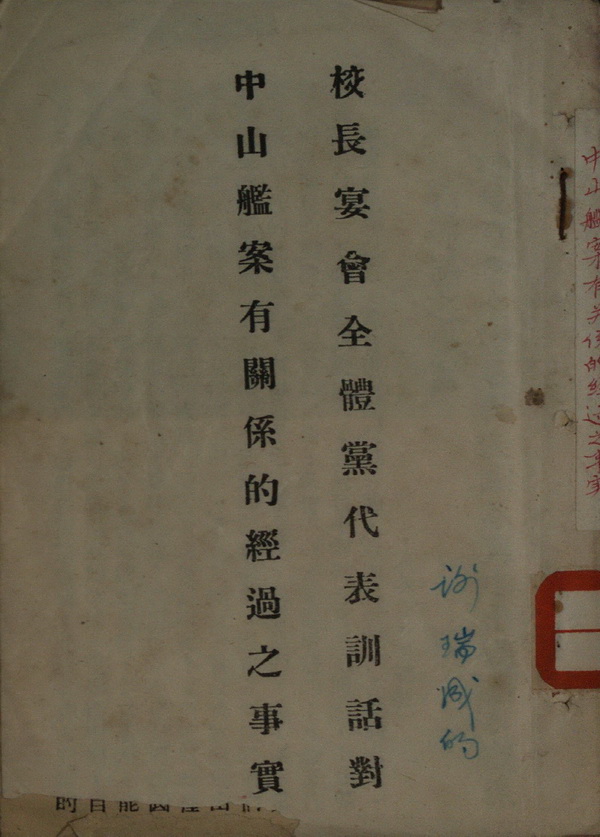 中山艦案有关係的经过之事实
谢瑞的
校長宴會全體黨代表訓話對
中山艦案有關係的經過之事實